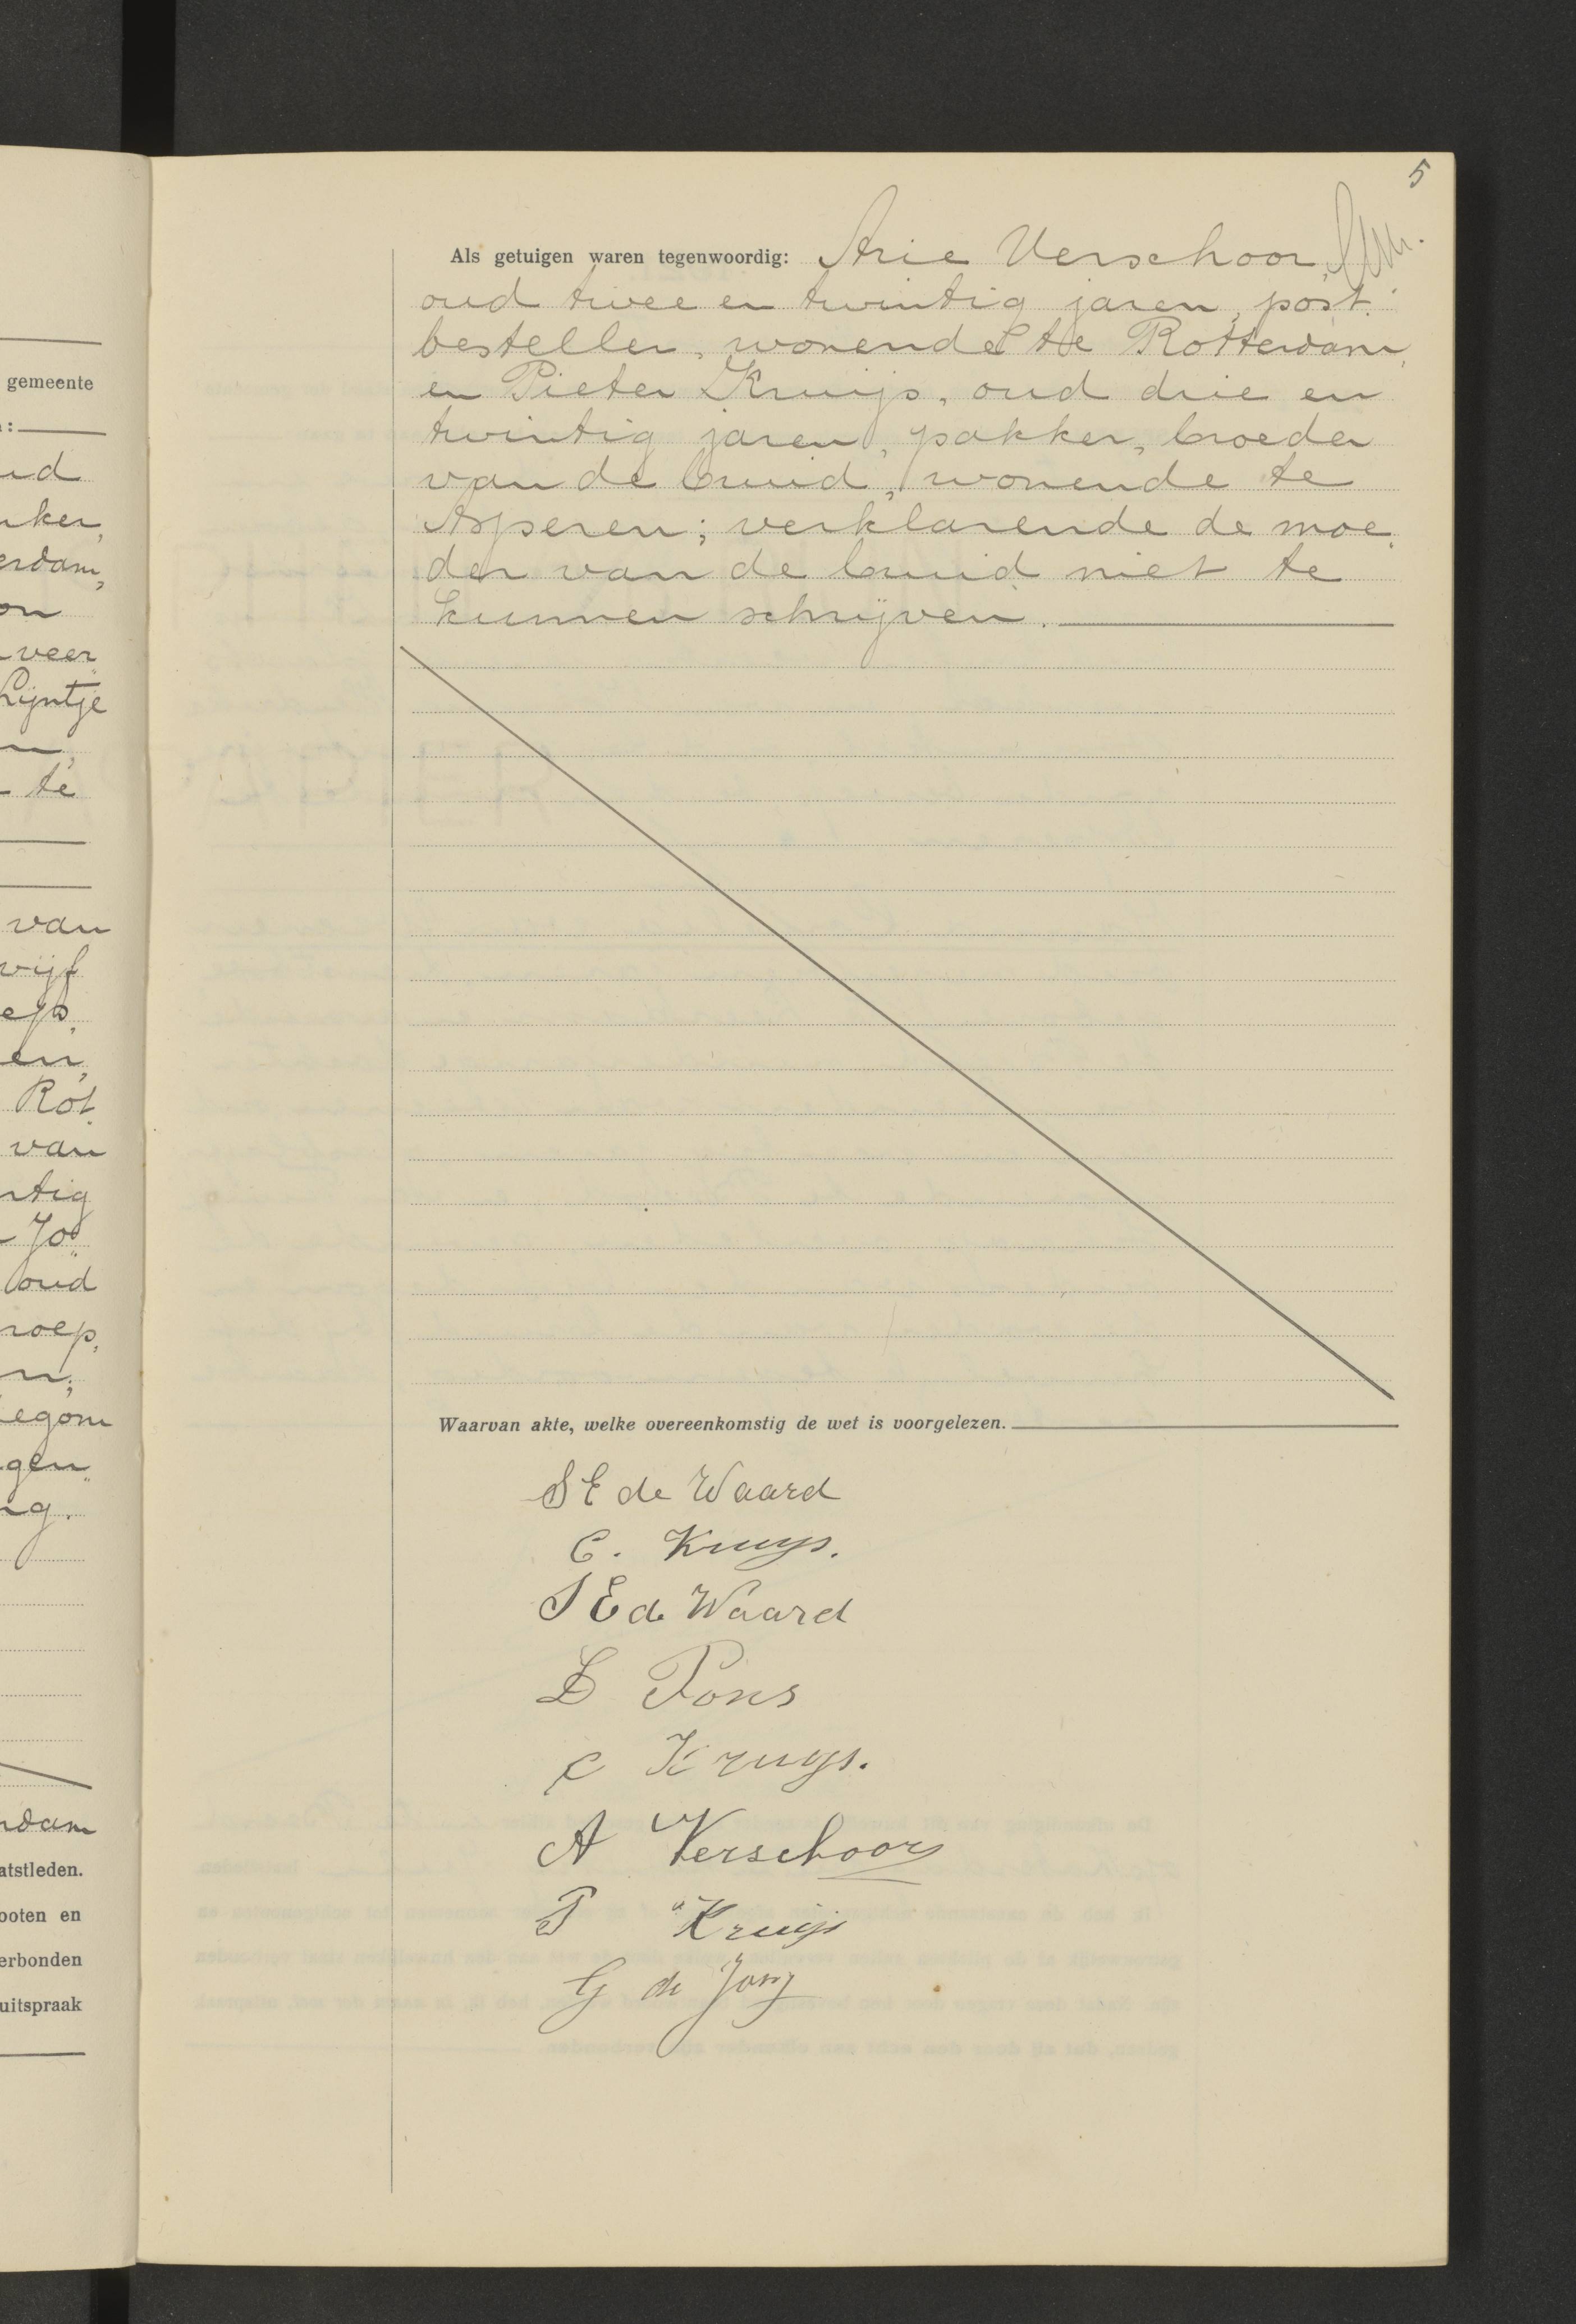 gemeente
:
ud
ker,
erdam,
on
veer
Lijntje
te
van
vijf
en,
Rot
van
ntig
Jo
oud
roep,
egom
gen
ng.
rdam
atstleden.
ooten en
erbonden
uitspraak
5
Als getuigen waren tegenwoordig: Arie Verschoor,
oud twee en twintig jaren, post.
besteller, wonende te Rotterdam,
en Pieter Kruijs, oud drie en
twintig jaren, pakker, broeder
van de bruid, wonende te
Asperen; verklarende de moe.
der van de bruid niet te
kunnen schrijven.
Waarvan akte, welke overeenkomstig de wet is voorgelezen.
S E de Waard
C. Kruys.
S E de Waard
L Pons
C Kruys.
A Verschoor
P Kruijs
G de Jong